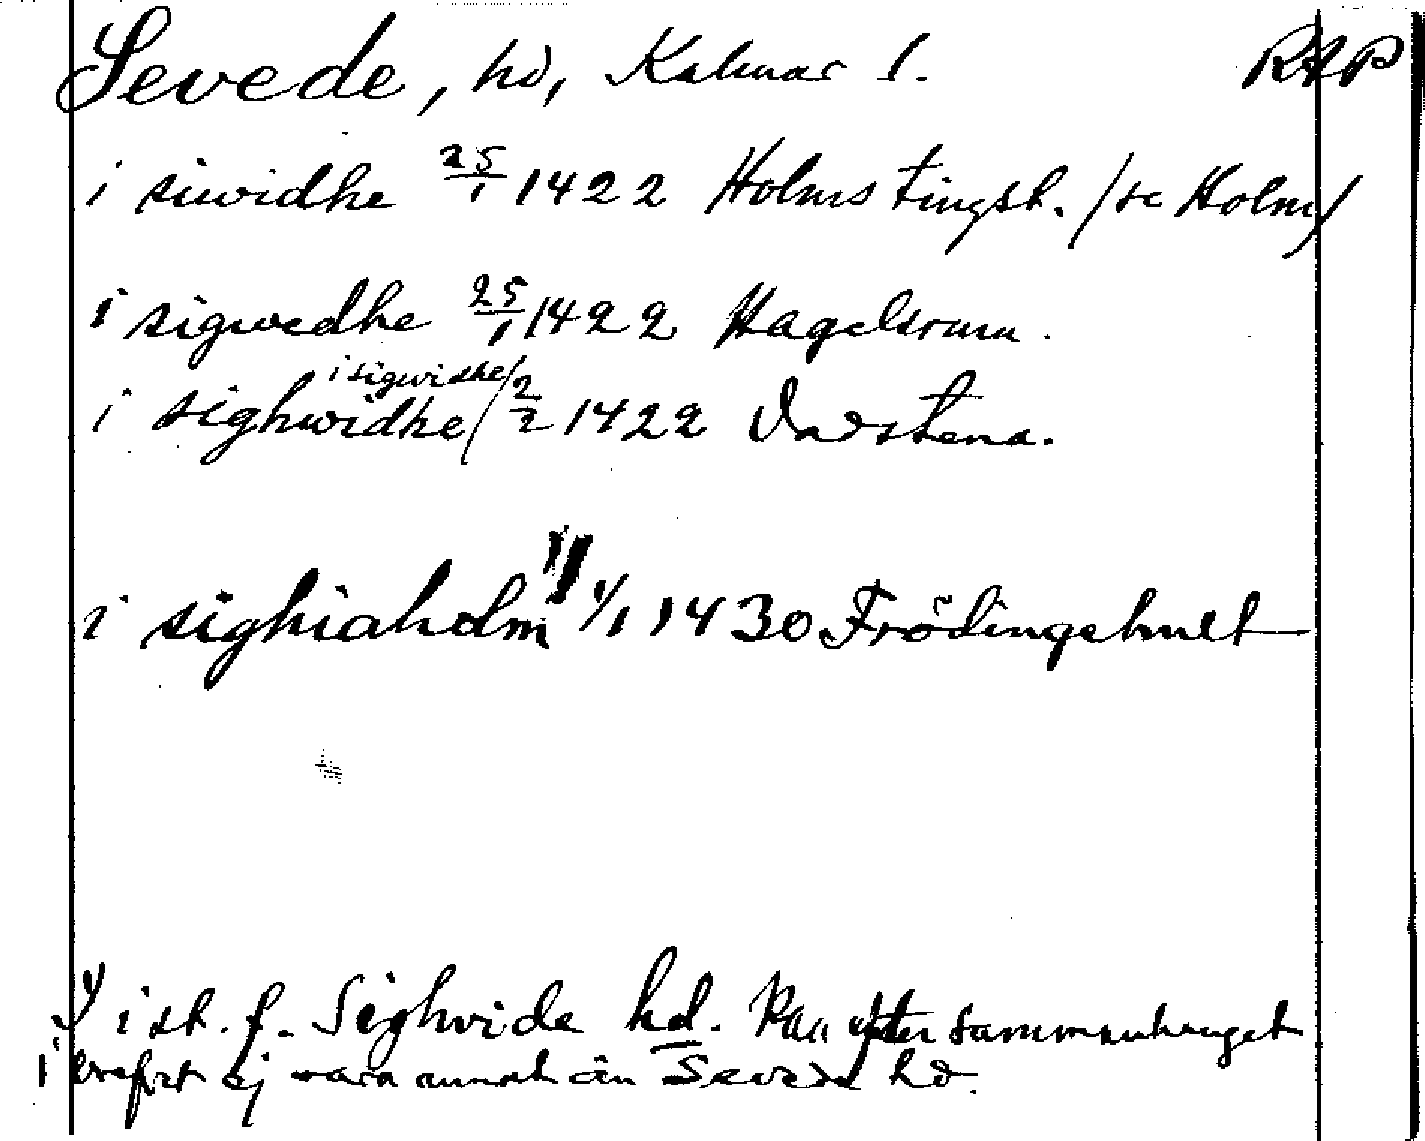 Sevede, hd, Kalmar l. RAP
i siwidhe 25/1 1422 Holms tingsl. /se Holm/
i sigwedhe 25/1 1422 Hagelsrum.
i sigwidhe/
i sighwidhe/ 2/2 1422 Vadstena.
i sighiaholm 1) 1/1 1430 Frödingehult
1) i st. f. Sighvide hd. Kan efter sammanhanget
i brefvet ej vara annat än Sevede hd.